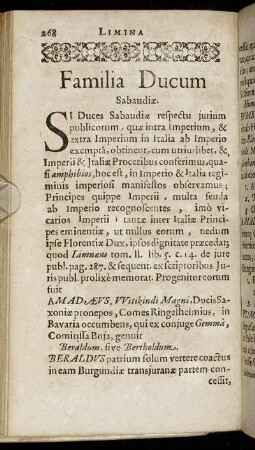 268 LIMINA
Familia Ducum
Sabaudiæ.
SI Duces Sabaudiæ respectu jurium
publicorum, quæ intra Imperium, &
extra Imperium in Italia ab Imperio
exemptâ, obtinent, cum utriuslibet, &
Imperii & Jtaliæ Proceribus conferimus, qua-
si amphibios, hoc est, in Imperio & Italia regi-
minis imperiosi manifestos observamus;
Principes quippe Imperii, multa feuda
ab Imperio recognoscentes, imò vi-
carios Imperii; tantæ inter Italiæ Princi-
pes eminentiæ, ut nullus eorum, nedum
ipse Florentiæ Dux, ipsos dignitate præcedat;
quod Limneus tom. II. lib. 5. c. 14. de jure
publ. pag. 287. & sequent. ex scriptoribus Ju-
ris publ. prolixè memorat. Progenitor eorum
est
AMADÆVS, VVitikindi Magni, Ducis Sa-
xoniæ pronepos, Comes Ringelheimius, in
Bavaria occumbens, qui ex conjuge Gemmâ,
Cominissa Boja, genuit
Beraldum, sive Bertholdum.
BERALDVS patrium solum vertere coactus
in eam Burgundiæ transjuranæ partem con-
cessit,